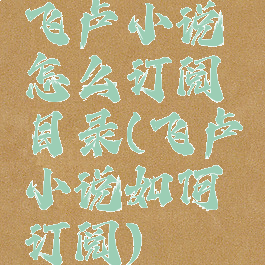 飞卢小说
怎么订阅
目录(飞卢
小说如何
订阅)